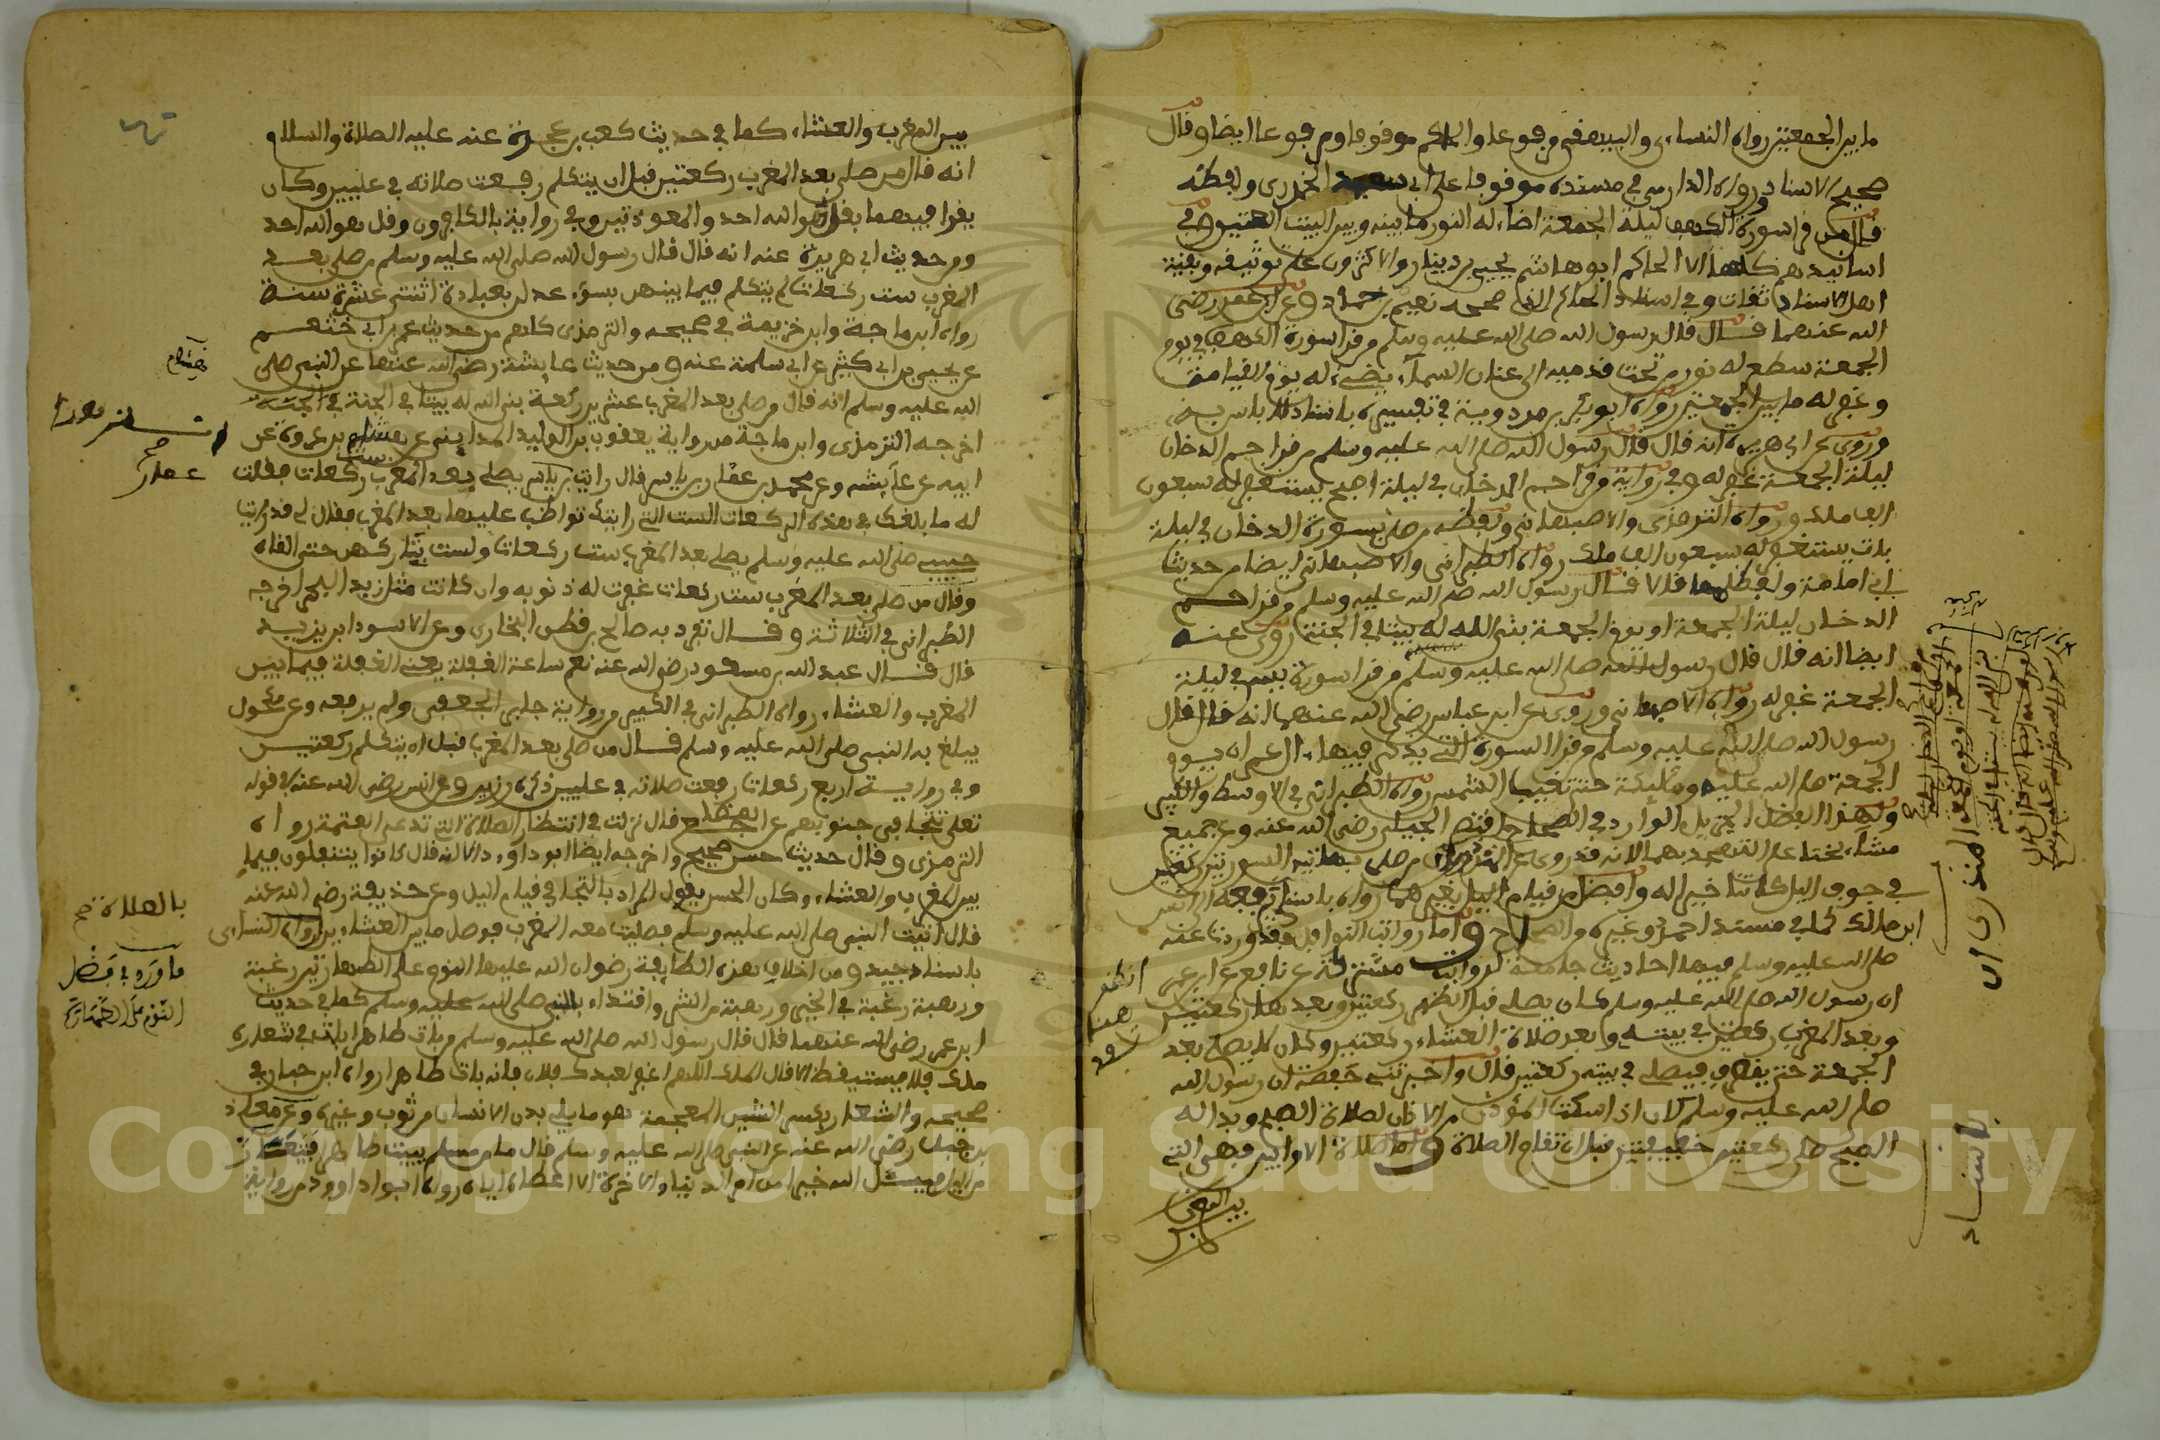 ما بين الجمعتين رواه النساءى والبيهقى مرفوعا والحاكم موقوفا ومرفوعا ايضا وقال
صحيح الاسناد ورواه الدارمى في مسنده موقوفا على ابي سعيد الخدرى ولفظه
قال من قرا سورة الكهف ليلة الجمعة اضاء له النور ما بينه وبين البيت العتيق وفي
اسانيدهم كلها الا الحاكم ابو هاشم يحيى بن دينار والاكثرون على توثيقه وبقية
اهل الاسناد ثقات وفي اسناد الحاكم الذى صححه نعيم بن حماد وعن ابن عمر رضي
الله عنهما قال قال رسول الله صلى الله عليه وسلم من قرا سورة الكهف في يوم
الجمعة سطع له نور من تحت قدميه الى عنان السماء يضيء له يوم القيامة
وغفر له ما بين الجمعتين رواه ابو بكر بن مردويه في تفسيره باسناد لا باس به
وروى عن ابي هريرة انه قال قال رسول الله صلى الله عليه وسلم من قرا حم الدخان
ليلة الجمعة غفر له وفي رواية من قرا حم الدخان في ليلة اصبح يستغفر له سبعون
الف ملك ورواه الترمذى والاصبهانى ولفظه من صلى بسورة الدخان في ليلة
بات يستغفر له سبعون الف ملك رواه الطبرانى والاصبهانى ايضا من حديث
ابي امامة ولفظهما قالا قال رسول الله صلى الله عليه وسلم من قرا حم
الدخان ليلة الجمعة او يوم الجمعة بنى الله له بيتا في الجنة روى عنه
ايضا انه قال قال رسول الله صلى الله عليه وسلم من قرا سورة يس في ليلة
الجمعة غفر له رواه الاصبهانى وروى عن ابن عباس رضي الله عنهما انه قال قال
رسول الله صلى الله عليه وسلم من قرا السورة التى يذكر فيها ال عمران يوم
الجمعة صلى الله عليه وملئكته حتى تغيب الشمس رواه الطبرانى في الاوسط والكبير
ولهذا الفضل الجزيل الوارد في
في جوف الليل كانتا خيرا له وافضل من قيام الليل بغيرهما رواه باسناد رفعه الى انس
ابن مالك كما في مسند احمد وغيره من الصحاح واما رواتب النوافل فقد ورد عنه
صلى الله عليه وسلم فيها احاديث جامعة لرواتب مشتركة عن نافع عن ابن عمر
ان رسول الله صلى الله عليه وسلم كان يصلى قبل الظهر ركعتين وبعدها ركعتين
وبعد المغرب ركعتين في بيته وبعد صلاة العشاء ركعتين وكان لا يصلى بعد
الجمعة حتى ينصرف فيصلى في بيته ركعتين قال واخبرتنى حفصة ان رسول الله
صلى الله عليه وسلم كان اذا سكت المؤذن من الاذان لصلاة الصبح وبدا له
الصبح صلى ركعتين خفيفتين قبل ان تقام الصلاة واما صلاة الاوابين فهى التى
بين المغرب
انظر
هنا
بين المغرب والعشاء كما في حديث كعب بن عجرة عنه عليه الصلاة والسلام
انه قال من صلى بعد المغرب ركعتين قبل ان يتكلم رفعت صلاته في عليين وكان
يقرا فيهما بقل هو الله احد والمعوذتين وفي رواية بالكافرون وقل هو الله احد
ومن حديث ابي هريرة عنه انه قال قال رسول الله صلى الله عليه وسلم من صلى بعد
المغرب ست ركعات لم يتكلم فيما بينهن بسوء عدلن بعبادة اثنتى عشرة سنة
رواه ابن ماجة وابن خزيمة في صحيحه والترمذى كلهم من حديث عمر ابن ابي خثعم
عن يحيى بن ابي كثير عن ابي سلمة عنه ومن حديث عايشة رضي الله عنها عن النبي صلى
الله عليه وسلم انه قال من صلى بعد المغرب عشرين ركعة بنى الله له بيتا في الجنة
اخرجه الترمذى وابن ماجة من رواية يعقوب بن الوليد المداينى عن هشام بن عروة عن
ابيه عن عايشة وعن محمد بن عمار بن ياسر قال رايت بن ياسر يصلى بعد المغرب ست ركعات فقلت
له ما بلغك في هذه الركعات الست التى رايتك تواظب عليها بعد المغرب فقال لى قد رايت
حبيبى صلى الله عليه وسلم يصلى بعد المغرب ست ركعات ولست بتاركهن حتى القاه
وقال من صلى بعد المغرب ست ركعات غفرت له ذنوبه وان كانت مثل زبد البحر اخرجه
الطبرانى في الثلاثة وقال تفرد به صالح بن قطن البخارى وعن الاسود ابن يزيد
قال قال عبد الله بن مسعود رضي الله عنه نعم ساعة الغفلة يعنى الغفلة فيما بين
المغرب والعشاء رواه الطبرانى في الكبير من رواية جابر الجعفى ولم يرفعه وعن مكحول
يبلغ به النبى صلى الله عليه وسلم قال من صلى بعد المغرب قبل ان يتكلم ركعتين
وفي رواية اربع ركعات رفعت صلاته في عليين ذكره رزين وعن انس رضي الله عنه في قوله
تعلى تتجافى جنوبهم عن المضاجع قال نزلت في انتظار الصلاة التى تدعى العتمة رواه
الترمذى وقال حديث حسن صحيح واخرجه ايضا ابو داوود الا انه قال كانوا يتنفلون فيما
بين المغرب والعشاء وكان الحسن يقول المراد بالتجافي قيام اليل وعن حذيفة رضي الله عنه
قال اتيت النبى صلى الله عليه وسلم فصليت معه المغرب فوصل ما بين العشاءين رواه النساءى
باسناد جيد ومن اخلاق هذه الطايفة رضوان الله عليها النوم على الطهارتين رغبة
ورهبة رغبة في الخير ورهبة من الشر واقتداء بالنبى صلى الله عليه وسلم كما في حديث
ابن عمر رضي الله عنهما قال قال رسول الله صلى الله عليه وسلم من بات طاهرا بات في شعاره
ملك فلا يستيقظ الا قال الملك اللهم اغفر لعبدك فلان فانه بات طاهرا رواه ابن حبان في
صحيحه والشعار بكسر الشين المعجمة هو ما يلى بدن الانسان من ثوب وغيره وعن معاذ
بن جبل رضي الله عنه عن النبى صلى الله عليه وسلم قال ما من مسلم يبيت طاهرا فيتعار
من اليل فيسئل الله خيرا من امر الدنيا والاخرة الا اعطاه اياه رواه ابو داوود من رواية
عمار
بالصلاة صح
ما ورد في فضل
النوم على الطهارة
Copyright © King Saud University